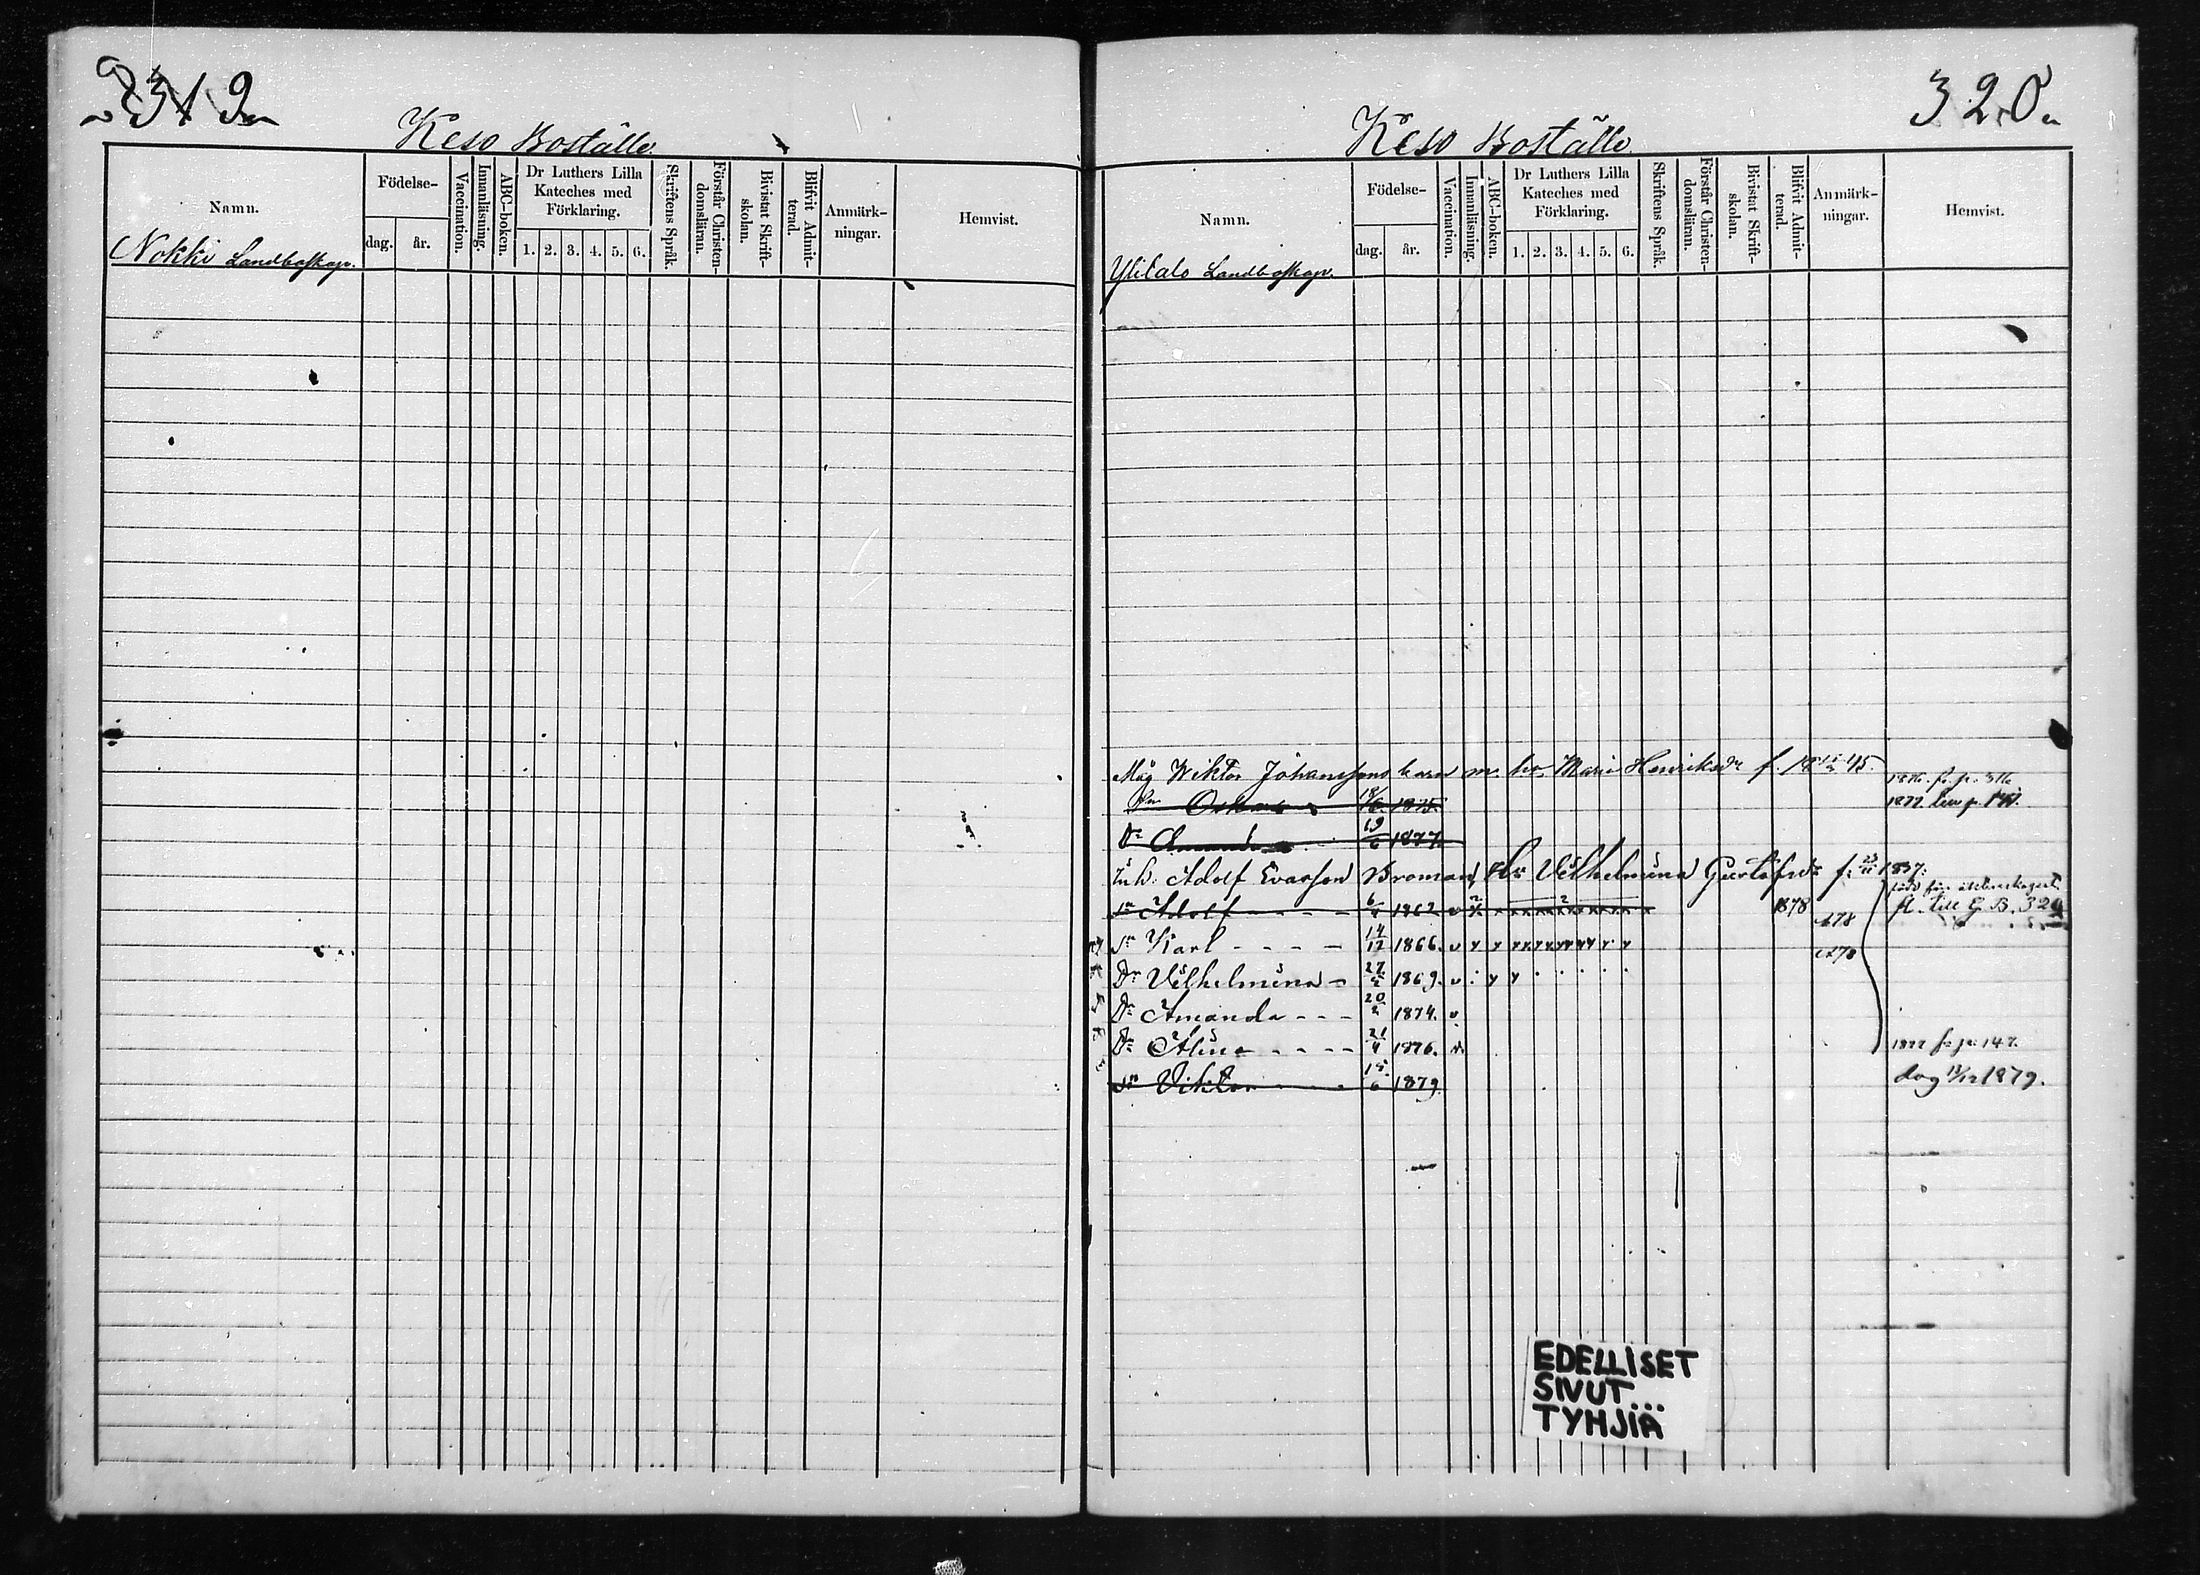 319
Keso Boställe
Namn.
Födelse-
dag.
år.
Vaccination.
Innanläsning.
ABC-boken.
Dr Luthers Lilla
Kateches med
Förklaring.
1. 2. 3. 4. 5. 6.
Skriftens Språk.
Förstår Christen-
domsläran.
Bivistat Skrift-
skolan.
Blifvit Admit-
terad.
Anmärk-
ningar.
Hemvist.
Nokki Landboskap.
320
Keso Boställe
Namn.
Födelse-
dag.
år.
Vaccination.
Innanläsning.
ABC-boken.
Dr Luthers Lilla
Kateches med
Förklaring.
1. 2. 3. 4. 5. 6.
Skriftens Språk.
Förstår Christen-
domsläran.
Bivistat Skrift-
skolan.
Blifvit Admit-
terad.
Anmärk-
ningar.
Hemvist.
Ylitalo Landboskap.
Måg Wiktor Johanssons barn m. hu Maria Henriksdr f.
1876. fr. p. 316
Oskar 1875.
1877
Dr Amanda 19/6 1877.
Inh. Adolf Evasson Broman, Hu Vilhelmina Gustafsdr f. 1837.
Sn Adolf - - - - 6/4 1862 v 1878 fl. till G. B. 324
Sn Karl - - - - 14/12 1866. v
Dr Vilhelmina - 27/2 1869. v
Dr Amanda - - - 20/2 1874. v
Dr Alina - - - - 21/4 1876. 1877 fr p. 147.
Sn Viktor - - - 15/6 1879 dog 13/12 1879.
EDELLISET
SIVUT
TYHJIÄ